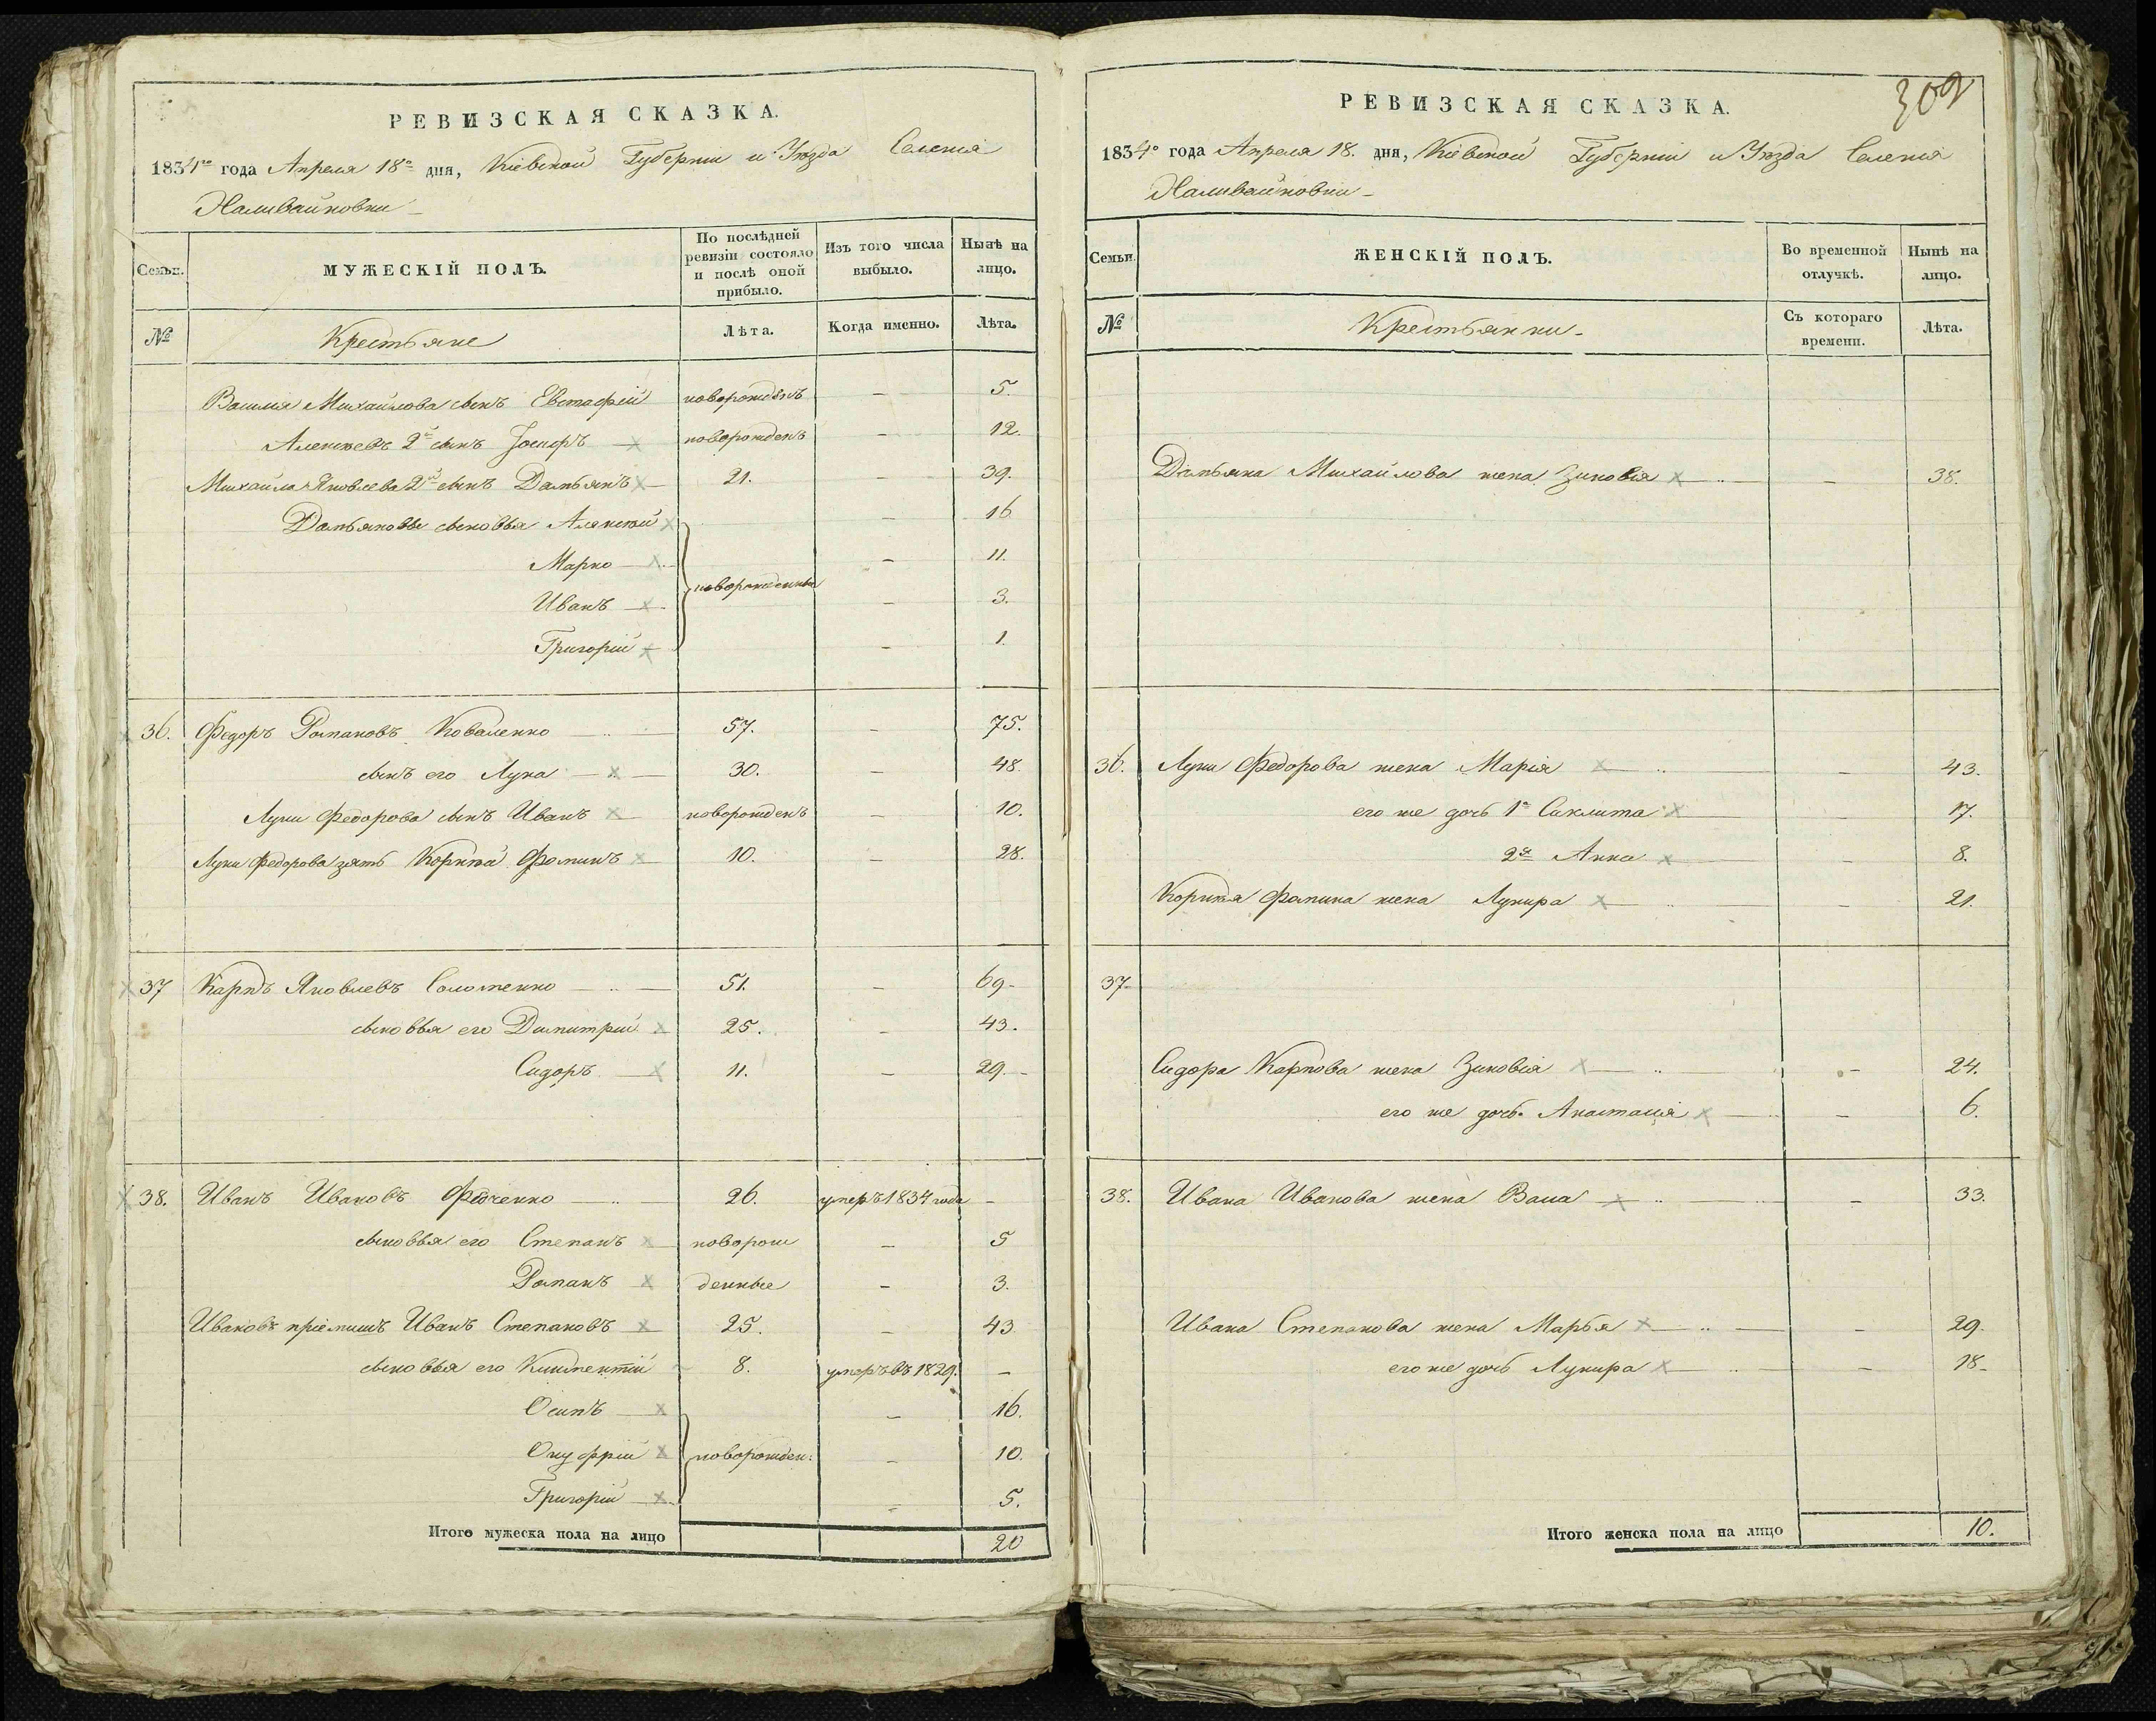 РЕВИЗСКАЯ СКАЗКА.
1834го года Апреля 18го дня, Кіевской Губерніи и Уѣзда Селенія
Наливайковки
Семьи.
МУЖЕСКІЙ ПОЛЪ.
По послѣдней ревизіи состояло и послѣ оной прибыло.
Изъ того числа выбыло.
Нынѣ на лицо.
№
Крестьяне
Лѣта.
Когда именно.
Лѣта.
Василія Михайлова сынъ Евстафій новорожденъ — 5.
Алексѣевъ 2й сынъ Іосифъ новорожденъ — 12.
Михайла Яковлева 2й сынъ Дамьянъ 21. — 39.
Дамьяновы сыновья Алексѣй — 16
Марко — 11.
новорожденные
Иванъ — 3.
Григорій — 1.
36. Федоръ Романовъ Коваленко 57. — 75.
сынъ его Лука 30. — 48.
Луки Федорова сынъ Иванъ новорожденъ — 10.
Луки Федорова зять Корнѣй Фоминъ 10. — 28.
37 Карпъ Яковлевъ Соломенко 51. — 69
сыновья его Димитрій 25. — 43.
Сидоръ 11. — 29.
38. Иванъ Ивановъ 26. умеръ 1834 года —
сыновья его Степанъ новорож — 5
Романъ денные — 3.
Ивановъ пріемышъ Иванъ Степановъ 25. — 43
сыновья его Климентій 8. умеръ въ 1829. —
Осипъ — 16.
Онуфрій новорожден: — 10.
Григорій — 5.
Итого мужеска пола на лицо 20
309
РЕВИЗСКАЯ СКАЗКА.
1834го года Апреля 18. дня, Кіевской Губерніи и Уѣзда Селенія
Наливайковки
Семьи.
ЖЕНСКІЙ ПОЛЪ.
Во временной отлучкѣ.
Нынѣ на лицо.
№
Крестьянки
Съ котораго времени.
Лѣта.
Дамьяна Михайлова жена Зиновія — 38.
36. Луки Федорова жена Марія — 43.
его же дочь 1я Секлита — 17.
2я Анна — 8.
Корнѣя Фомина жена Лукира — 21.
37
Сидора Карпова жена Зиновія — 24.
его же дочь Анастасія — 6.
38. Ивана Иванова жена Васа — 33.
Ивана Степанова жена Марья — 29.
его же дочь Лукира — 18
Итого женска пола на лицо 10.